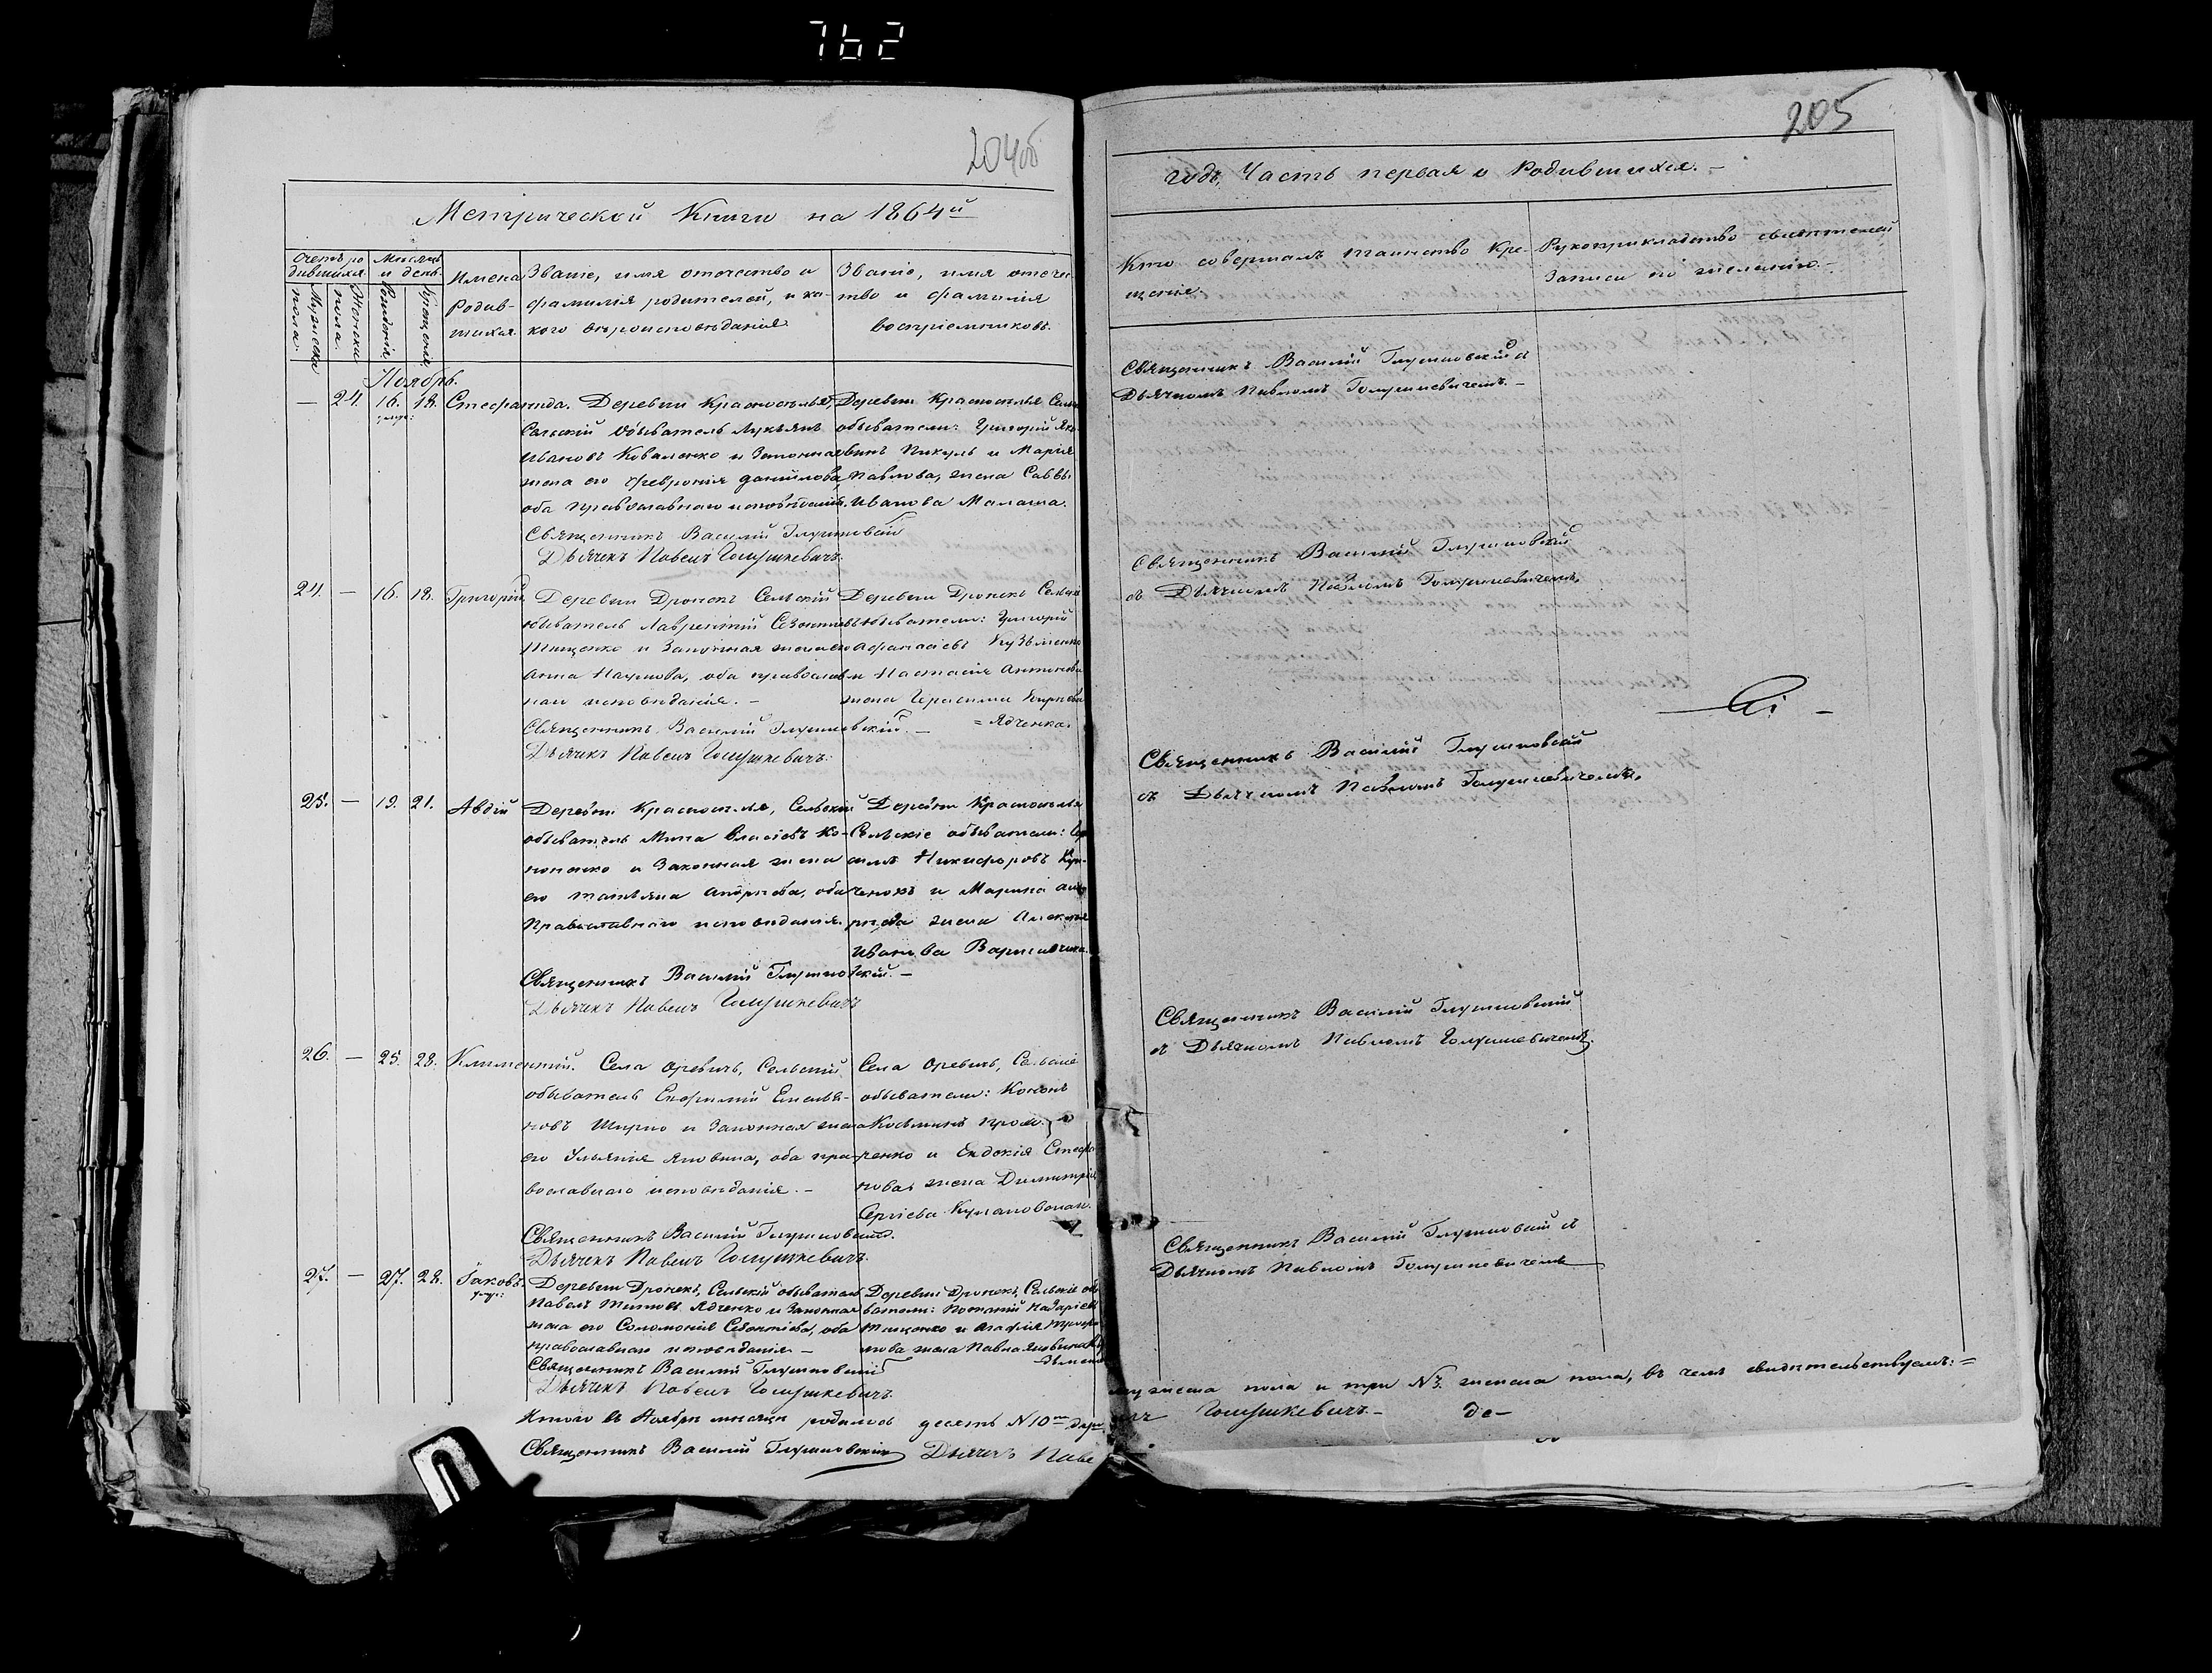 762
204об
Метрической Книги на 1864й
Счетъ родившихся
Мужеска пола.
Женска пола.
Месяцъ и день
Рожденія
Крещенія
Имена Родившихся.
Званіе, имя отчество и фамилія родителей, и какого вероисповеданія.
Званіе, имя отечество и фамилія воспріемниковъ.
Ноябрь.
— 24. 16. 18. Стефанида.
Деревни Красноселья,
Сельскій обыватель Лукьянъ
Ивановъ Коваленко и Законная
жена его Феуронія Данилова,
оба православнаго исповеданія.
Деревни Красноселья
обыватели: Григорій
Пикуль и Марія
Павлова, жена Саввы
Иванова Малаша.
Священникъ Василій Глушковскій
Дьячекъ Павелъ Голушкевичъ.
24. — 16. 18. Григорій
Деревни Дронекъ Сельскій
обыватель Лаврентій
Тищенко и Законная жена его
Анна Наумова, оба православнаго исповеданія. —
Деревни Дронекъ
обыватели: Григорій
Афанасіевъ Кузьменко
и Настасія Антонова
жена Герасима
= Ядченка.
Священникъ Василій Глушковскій. —
Дьячекъ Павелъ Голушкевичъ.
25. — 19. 21. Авдій
Деревни Красноселья, Сельскій
обыватель Мина Власіевъ Кононенко и Законная жена
его Татьяна Андреева, оба
Православнаго исповеданія.
Деревни Красноселья
Сельскіе обыватели:
Никифоровъ
и Марина
жена Алексея
Иванова
Священникъ Василій Глушковскій. —
Дьячекъ Павелъ Голушкевичъ
26. — 25. 28. Климентій.
Села Оревичъ, Сельскій
обыватель Евфимій Емельяновъ Ширко и Законная жена
его Ульянія Яковина, оба православнаго исповеданія. —
Села Оревичъ, Сельскіе
обыватели: Кононъ
Козьминъ
и Евдокія
жена Димитрія
Сергіева
Священникъ Василій Глушковскій.
Дьячекъ Павелъ Голушкевичъ.
27. — 27. 28. Іаковъ.
Деревни Дронекъ, Сельскій обыватель
Павелъ Титовъ Ядченко и Законная
жена его Соломонія Севонтіева, оба
православнаго исповеданія —
Деревни Дронекъ, Сельскіе
обыватели: Потапій Назаріевъ
Тищенко и Агафія
жена Павла
Священникъ Василій Глушковскій
Дьячекъ Павелъ Голушкевичъ.
Итого въ Ноябре месяце родилось десять N10
Священникъ Василій Глушковскій Дьячекъ Паве
205
годъ, Часть первая о Родившихся. —
Кто совершалъ таинство Крещенія.
Рукоприкладство свидетелей
Записи по желанію. —
Священникъ Василій Глушковскій съ
Дьячкомъ Павломъ Голушкевичемъ. —
Священникъ Василій Глушковскій
съ Дьячкомъ Павломъ Голушкевичемъ.
Священникъ Василій Глушковскій
съ Дьячкомъ Павломъ Голушкевичемъ.
Священникъ Василій Глушковскій
съ Дьячкомъ Павломъ Голушкевичемъ.
Священникъ Василій Глушковскій съ
Дьячкомъ Павломъ Голушкевичемъ
мужеска пола и три N3. женска пола, въ чемъ свидетельствуемъ: =
Голушкевичъ. —